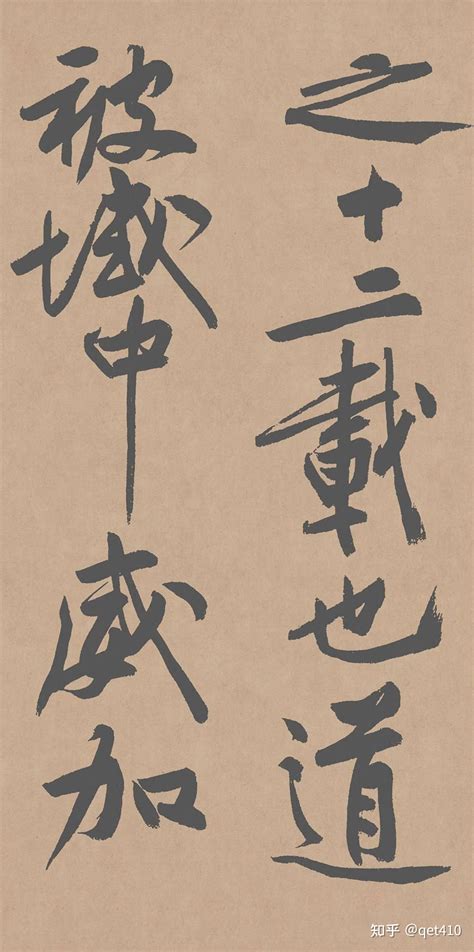 之十二載也道
被域中威加
知乎 @qet410